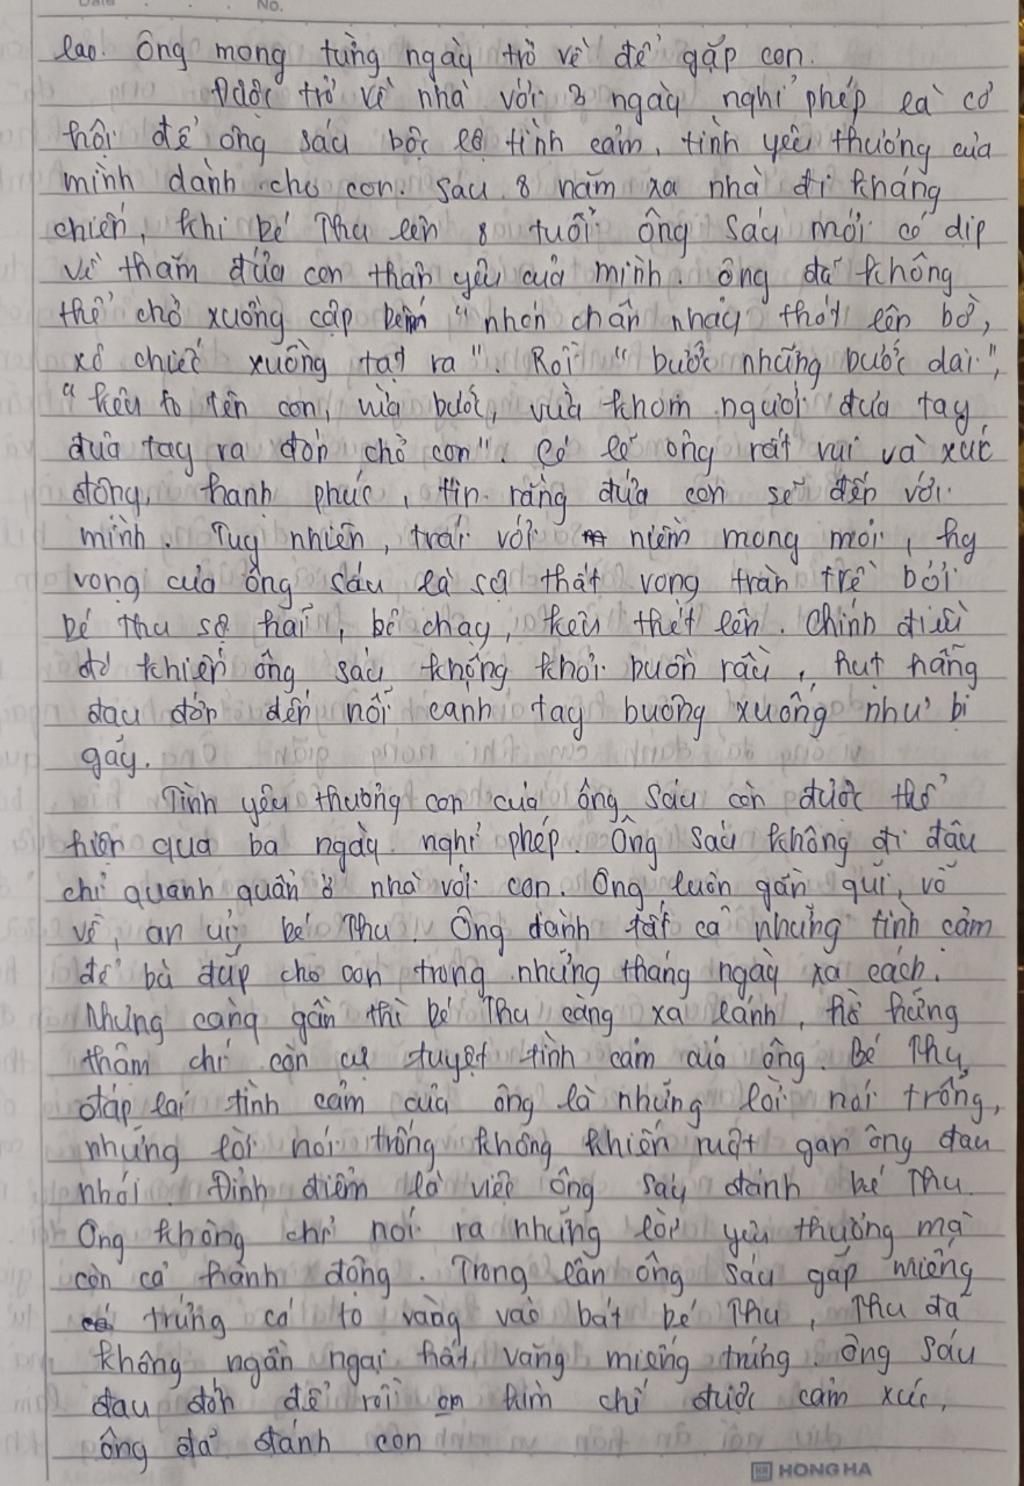 No.
lao. Ông mong từng ngày trở về để gặp con.
Được trở về nhà với 3 ngày nghỉ phép là cơ
hội để ông sáu bộc lộ tình cảm, tình yêu thương của
mình dành cho con. Sau 8 năm xa nhà đi kháng
chiến, khi bé Thu lên 8 tuổi ông Sáu mới có dịp
về thăm đứa con thân yêu của mình. Ông đã không
thể chờ xuồng cập bến "nhón chân nhảy thót lên bờ,
xô chiếc xuồng tạt ra". Rồi "bước những bước dài",
"kêu to tên con, vừa bước, vừa khom người đưa tay
đưa tay ra đón chờ con". Có lẽ ông rất vui và xúc
động, hạnh phúc, tin rằng đứa con sẽ đến với
mình. Tuy nhiên, trái với niềm mong mỏi, hy
vọng của ông Sáu là sự thất vọng tràn trề bởi
bé Thu sợ hãi, bỏ chạy, kêu thét lên. Chính điều
đó khiến ông sáu không khỏi buồn rầu, hụt hẫng
đau đớn đến nỗi cánh tay buông xuống như bị
gãy.
Tình yêu thương con của ông Sáu còn được thể
hiện qua ba ngày nghỉ phép. Ông Sáu không đi đâu
chỉ quanh quẩn ở nhà với con. Ông luôn gần gũi, vỗ
về, an ủi bé Thu. Ông dành tất cả những tình cảm
để bù đắp cho con trong những tháng ngày xa cách.
Nhưng càng gần thì bé Thu càng xa lánh, hờ hững
thậm chí còn cự tuyệt tình cảm của ông. Bé Thu
đáp lại tình cảm của ông là những lời nói trống,
những lời nói trống không khiến ruột gan ông đau
nhói. Đỉnh điểm là việc ông Sáu đánh bé Thu.
Ông không chỉ nói ra những lời yêu thương mà
còn cả hành động. Trong lần ông Sáu gắp miếng
trứng cá to vàng vào bát bé Thu, Thu đã
không ngần ngại hất văng miếng trứng. Ông Sáu
đau đớn để rồi kìm chế được cảm xúc,
ông đã đánh con
HONG HA